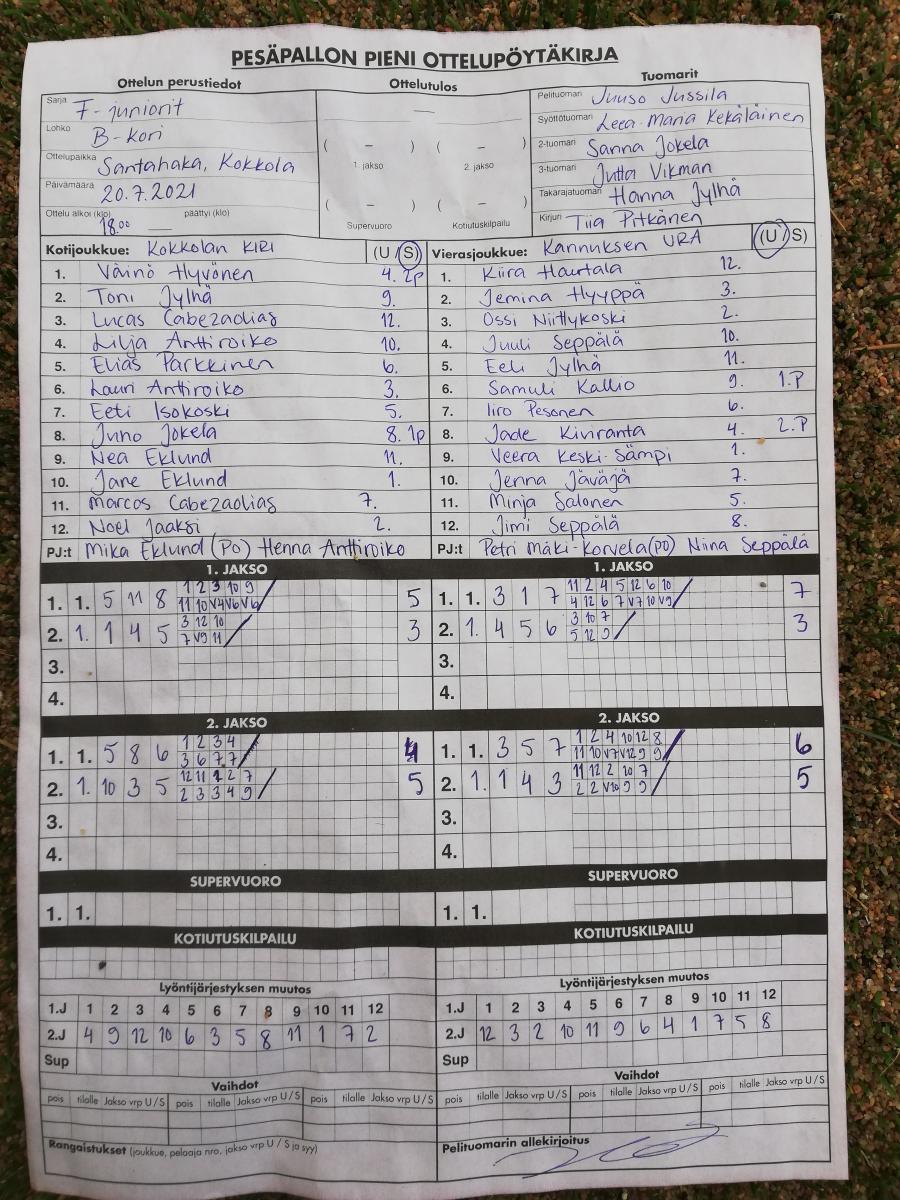 PESÄPALLON PIENI OTTELUPÖYTÄKIRJA
Ottelun perustiedot Ottelutulos Tuomarit
Sarja F-juniorit
Lohko B-kori
Ottelupaikka Santahaka, Kokkola
Päivämäärä 20.7.2021
Ottelu alkoi (klo) 18.00 päättyi (klo) —
—
( – ) ( – )
1. jakso 2. jakso
( – ) ( – )
Supervuoro Kotiutuskilpailu
Pelituomari Juuso Jussila
Syöttötuomari Leea-Maria Kekäläinen
2-tuomari Sanna Jokela
3-tuomari Jutta Vikman
Takarajatuomari Hanna Jylhä
Kirjuri Tiia Pitkänen
Kotijoukkue: Kokkolan KIRI (U/S)
1. Väinö Hyvönen 4. 2p
2. Toni Jylhä 9.
3. Lucas Cabezaolias 12.
4. Lilja Anttiroiko 10.
5. Elias Parkkinen 6.
6. Lauri Anttiroiko 3.
7. Eeti Isokoski 5.
8. Juho Jokela 8. 1p
9. Nea Eklund 11.
10. Jane Eklund 1.
11. Marcos Cabezaolias 7.
12. Noel Jaaksi 2.
PJ:t Mika Eklund (PO) Henna Anttiroiko
Vierasjoukkue: Kannuksen URA (U/S)
1. Kiira Hautala 12.
2. Jemina Hyyppä 3.
3. Ossi Niittykoski 2.
4. Juuli Seppälä 10.
5. Eeli Jylhä 11.
6. Samuli Kallio 9. 1.P
7. Iiro Pesonen 6.
8. Jade Kiviranta 4. 2.P
9. Veera Keski-Sämpi 1.
10. Jenna Jäväjä 7.
11. Minja Salonen 5.
12. Jimi Seppälä 8.
PJ:t Petri Mäki-Korvela (PO) Niina Seppälä
1. JAKSO
1. 1. 5 11 8 1 2 3 10 9 / 5
11 10 V4 V6 V6
2. 1. 1 4 5 3 12 10 / 3
7 V9 11
3.
4.
1. JAKSO
1. 1. 3 1 7 11 2 4 5 12 6 10 / 7
4 12 6 7 V7 10 V9
2. 1. 4 5 6 3 10 7 / 3
5 12 9
3.
4.
2. JAKSO
1. 1. 5 8 6 1 2 3 4 / 4
3 6 7 7
2. 1. 10 3 5 12 11 1 2 7 / 5
2 3 3 4 9
3.
4.
2. JAKSO
1. 1. 3 5 7 1 2 4 10 12 8 / 6
11 10 V7 V12 9 9
2. 1. 1 4 3 11 12 2 10 7 / 5
2 2 V10 9 9
3.
4.
SUPERVUORO SUPERVUORO
1. 1. 1. 1.
KOTIUTUSKILPAILU KOTIUTUSKILPAILU
Lyöntijärjestyksen muutos Lyöntijärjestyksen muutos
1.J 1 2 3 4 5 6 7 8 9 10 11 12 1.J 1 2 3 4 5 6 7 8 9 10 11 12
2.J 4 9 12 10 6 3 5 8 11 1 7 2 2.J 12 3 2 10 11 9 6 4 1 7 5 8
Sup Sup
Vaihdot Vaihdot
pois tilalle Jakso vrp U/S pois tilalle Jakso vrp U/S pois tilalle Jakso vrp U/S pois tilalle Jakso vrp U/S pois tilalle Jakso vrp U/S pois tilalle Jakso vrp U/S
Rangaistukset (joukkue, pelaaja nro, jakso vrp U / S ja syy) Pelituomarin allekirjoitus